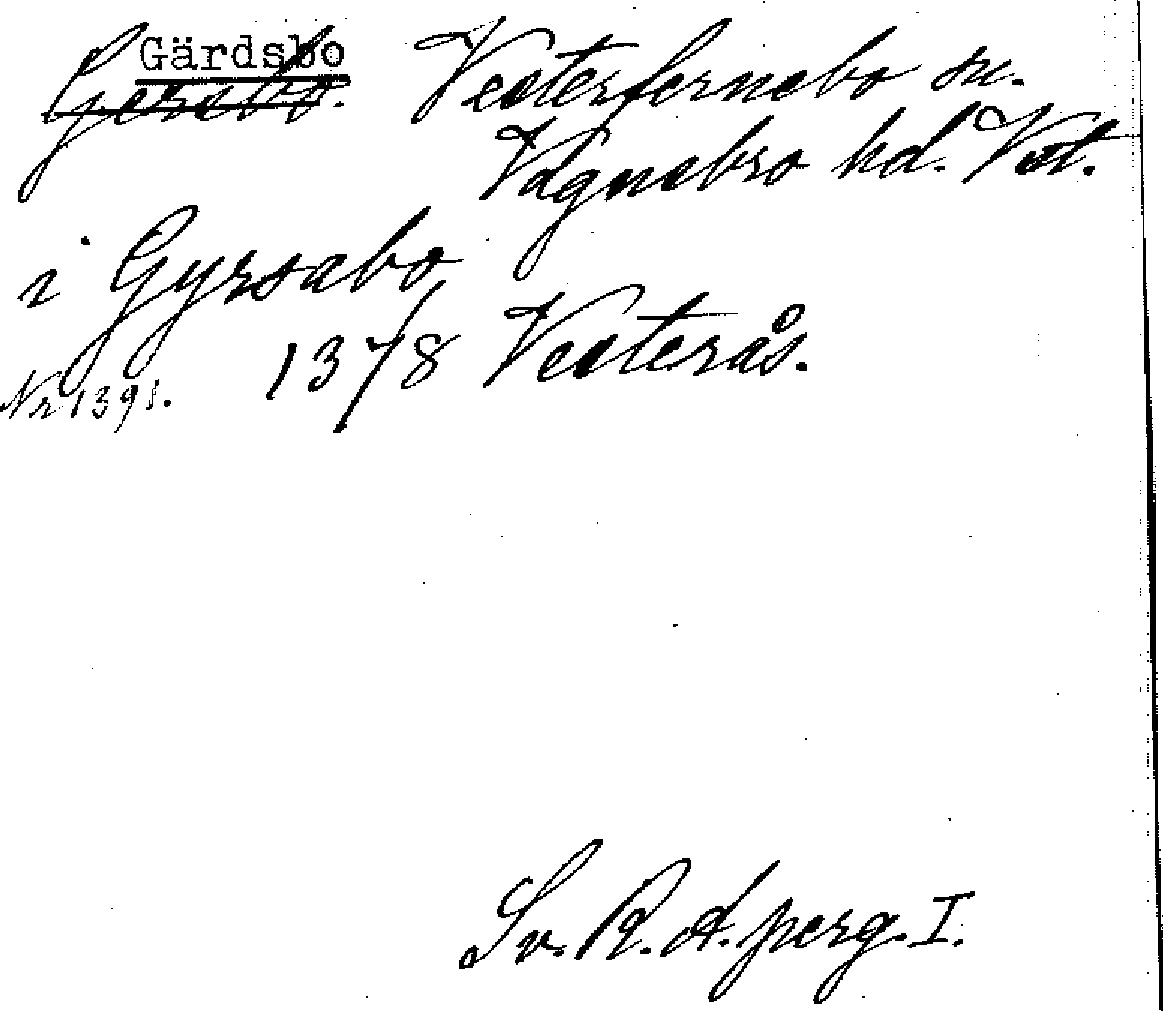 Gärdsbo
Gersbo. Vesterfernebo sn.
Vagnsbro hd. Vstl.
i Gyrsabo
1378 Vesterås.
Nr 1391.
Sv. R. A. perg. I.